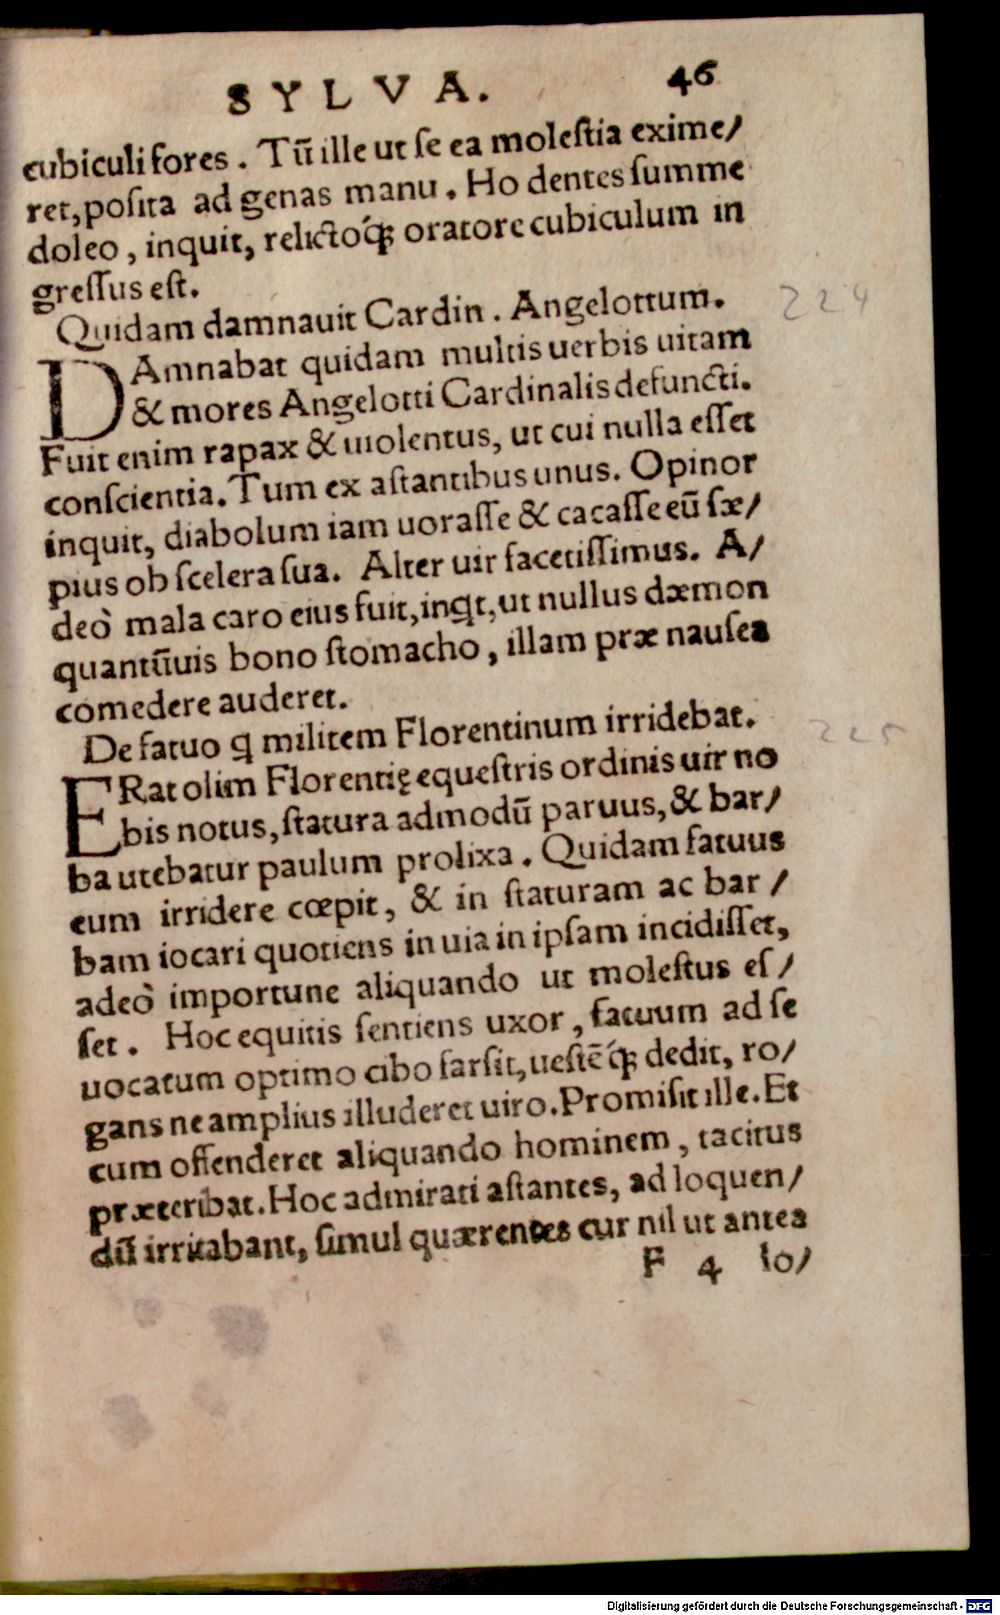 SYLVA. 46
cubiculi fores. Tū ille ut se ea molestia exime/
ret, posita ad genas manu. Ho dentes summe
doleo, inquit, relictoq́; oratore cubiculum in
gressus est.
Quidam damnauit Cardin. Angelottum.
224
DAmnabat quidam multis uerbis uitam
& mores Angelotti Cardinalis defuncti.
Fuit enim rapax & uiolentus, ut cui nulla esset
conscientia. Tum ex astantibus unus. Opinor
inquit, diabolum iam uorasse & cacasse eū sæ/
pius ob scelera sua. Alter uir facetissimus. A/
deò mala caro eius fuit, inqt, ut nullus dæmon
quantūuis bono stomacho, illam præ nausea
comedere auderet.
De fatuo q militem Florentinum irridebat.
225
ERat olim Florentię equestris ordinis uir no
bis notus, statura admodū paruus, & bar/
ba utebatur paulum prolixa. Quidam fatuus
eum irridere cœpit, & in staturam ac bar/
bam iocari quotiens in uia in ipsam incidisset,
adeò importune aliquando ut molestus es/
set. Hoc equitis sentiens uxor, fatuum ad se
uocatum optimo cibo farsit, uestēq́; dedit, ro/
gans ne amplius illuderet uiro. Promisit ille. Et
cum offenderet aliquando hominem, tacitus
præteribat. Hoc admirati astantes, ad loquen/
dū irritabant, simul quærentes cur nil ut antea
F 4 lo/
Digitalisierung gefördert durch die Deutsche Forschungsgemeinschaft - DFG